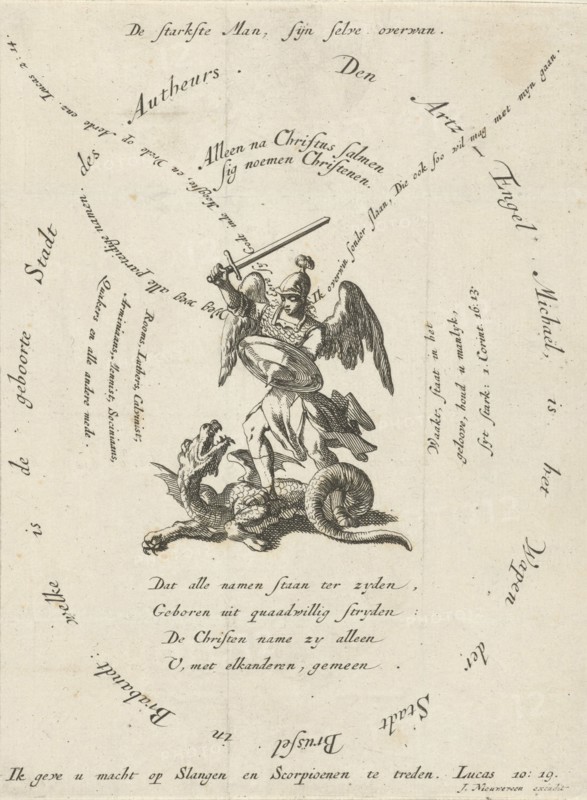 De starkste Man, sijn selve overwan.
Den Artz-Engel Michaël, is het Wapen der Stadt Brussel in Brabandt. welke is de geboorte Stadt des Autheurs.
Alleen na Christus salmen
sig noemen Christenen.
Godt inde Hoogste, en Vrede op Aerde enz. Lucas 2: 14.
Ik overwin sonder slaan, Die ook soo wil mag met mijn gaan.
Weg weg alle parteidige namen.
Rooms, Luthers, Calvinist,
Arminiaans, Mennist, Socinians,
Quakers en alle andere mede.
Waakt, staat in het
geloove, houd u manlyk,
syt stark: 1. Corint. 16: 13.
Dat alle namen staan ter zyden,
Geboren uit quaadwillig stryden:
De Christen name zy alleen
U, met elkanderen, gemeen.
Ik geve u macht op Slangen en Scorpioenen te treden. Lucas 10: 19.
J. Nieuwveen excudit